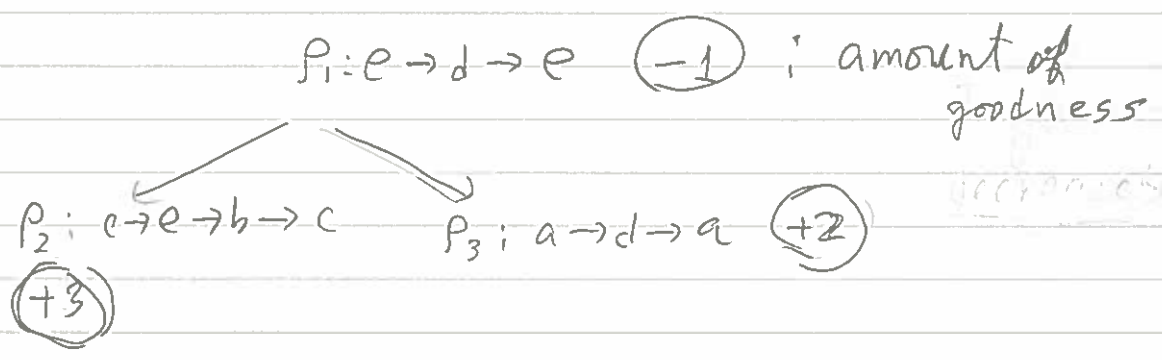 P₁: e → d → e (-1) : amount of
goodness
P₂: c → e → b → c P₃: a → d → a (+2)
(+3)